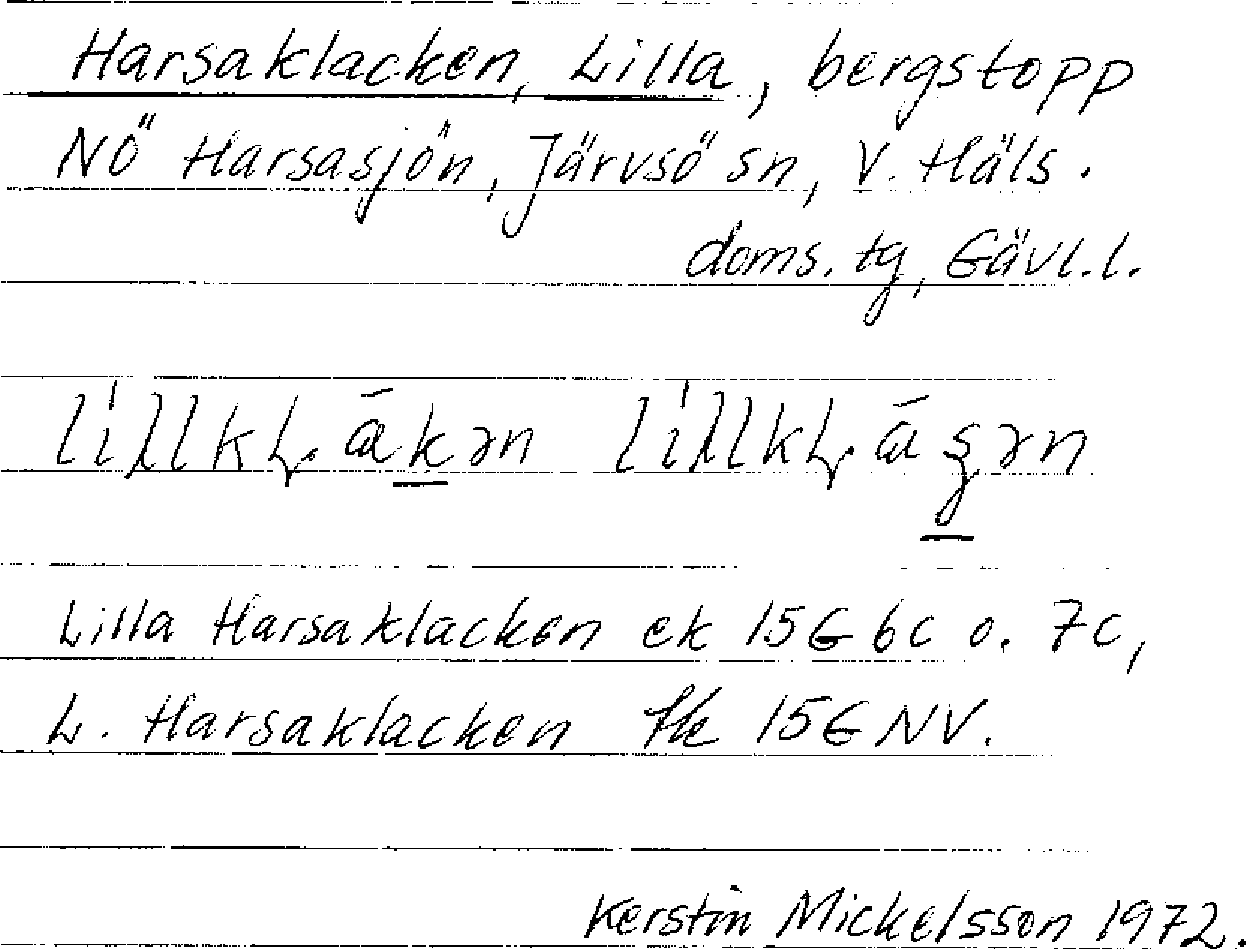 Harsaklacken, Lilla, bergstopp
NÖ Harsasjön, Järvsö sn, V. Häls.
doms. tg, Gävl.l.
Lilla Harsaklacken ek 15G 6c o. 7c,
L. Harsaklacken 15G NV.
Kerstin Mickelsson 1972.